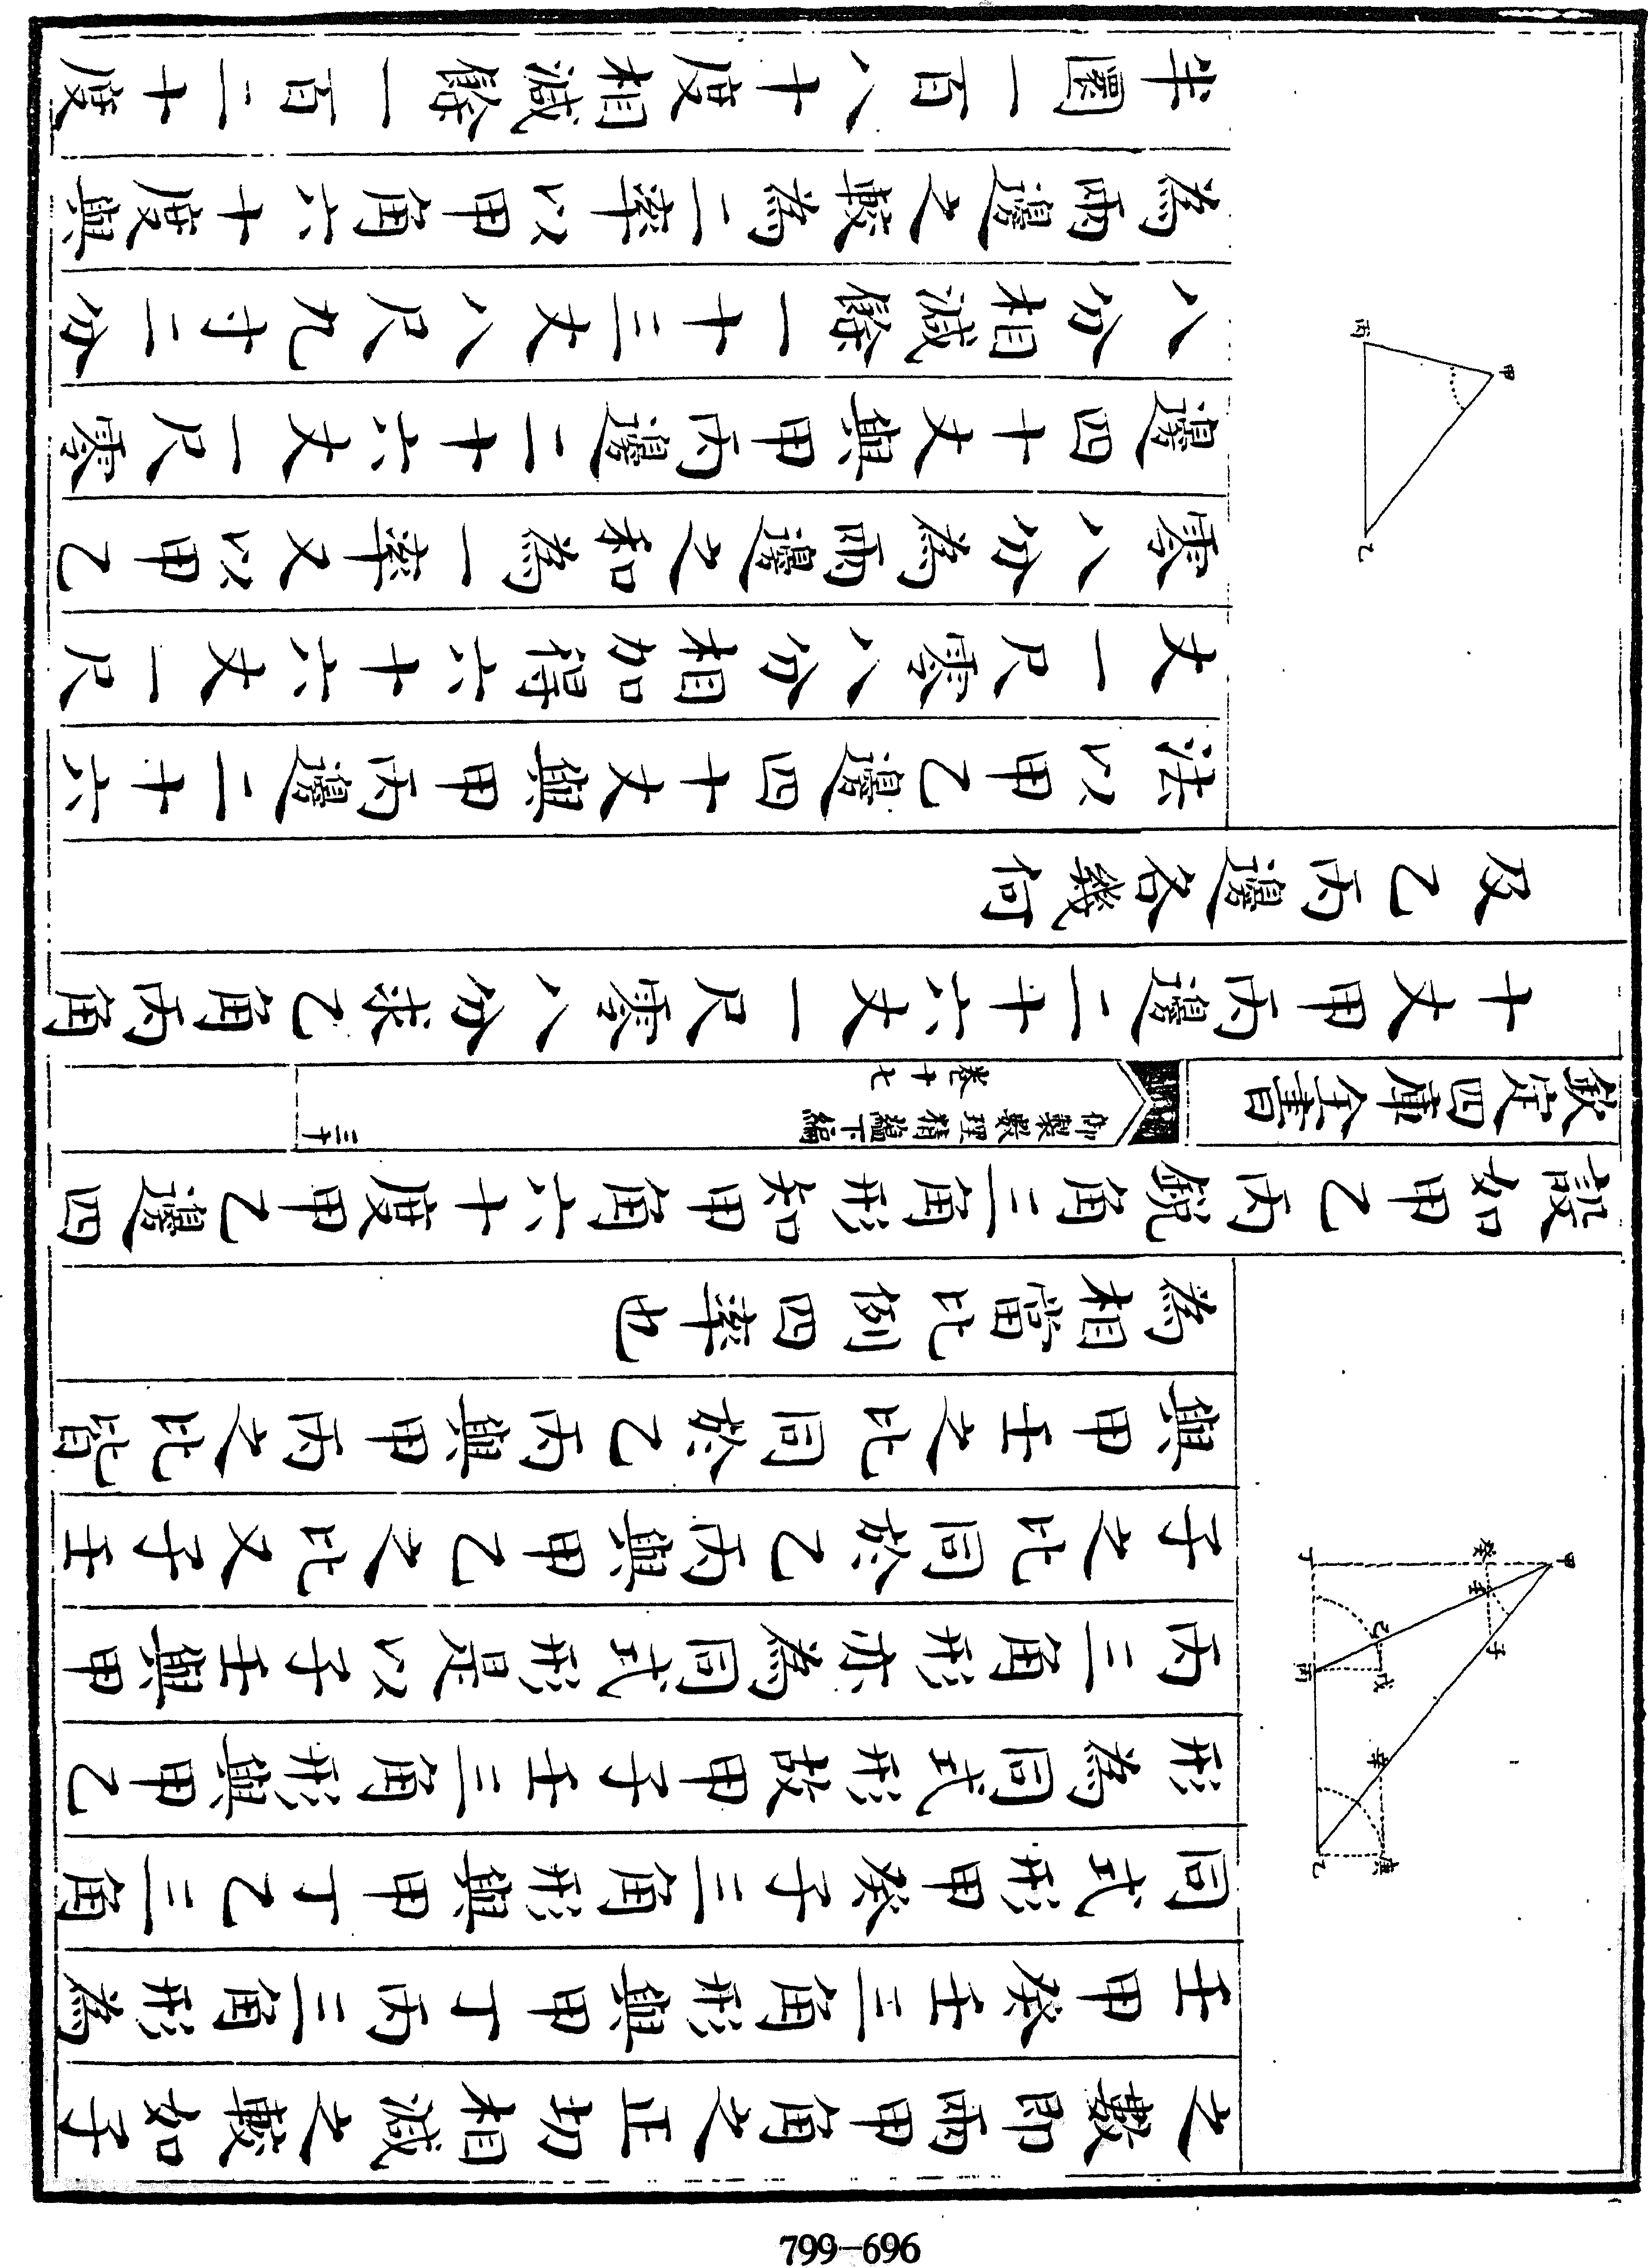 之數即兩甲角之正切相減之較如子
壬甲癸壬三角形與甲丁丙三角形為
同式形甲癸子三角形與甲丁乙三角
形為同式形故甲子壬三角形與甲乙
丙三角形亦為同式形是以子壬與甲
子之比同於乙丙與甲乙之比又子壬
與甲壬之比同於乙丙與甲丙之比皆
為相當比例四率也
甲
癸
丁
壬
子
己
丙
戊
辛
庚
乙
設如甲乙丙銳角三角形知甲角六十度甲乙邊四
欽定四庫全書
御製數理精蘊下編
卷十七
三十
十丈甲丙邊二十六丈一尺零八分求乙角丙角
及乙丙邊各幾何
法以甲乙邊四十丈與甲丙邊二十六
丈一尺零八分相加得六十六丈一尺
零八分為兩邊之和為一率又以甲乙
邊四十丈與甲丙邊二十六丈一尺零
八分相減餘一十三丈八尺九寸二分
為兩邊之較為二率以甲角六十度與
半圜一百八十度相減餘一百二十度
甲
丙
乙
799-696